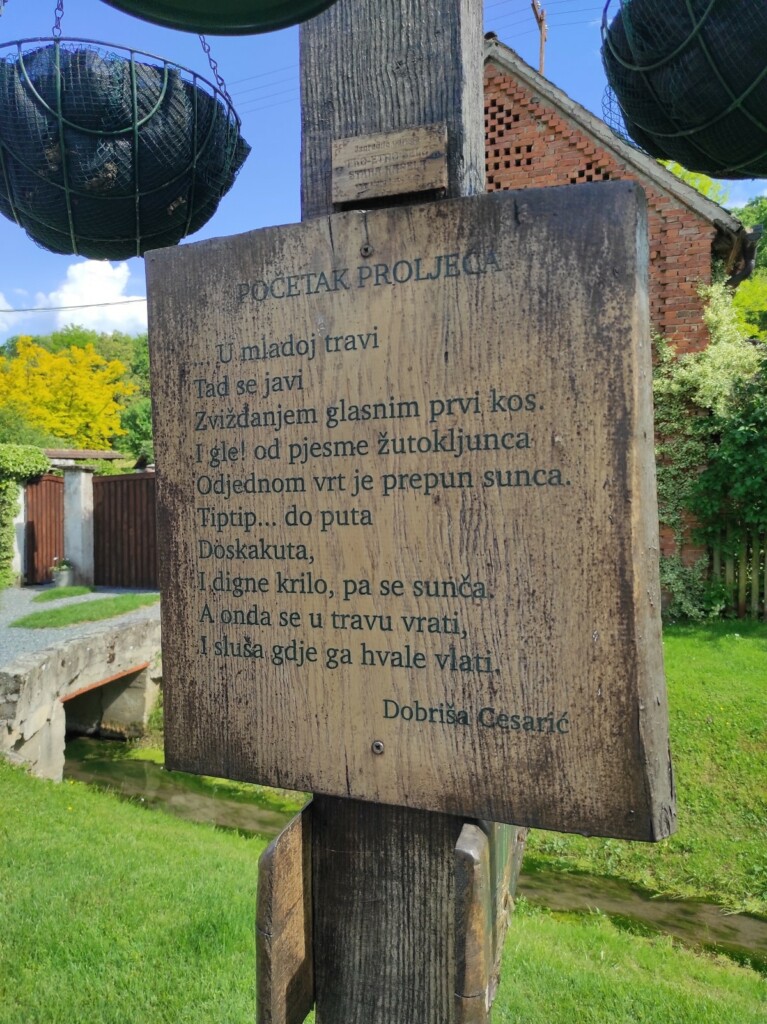 POČETAK PROLJEĆA
... U mladoj travi
Tad se javi
Zviždanjem glasnim prvi kos.
I gle! od pjesme žutokljunca
Odjednom vrt je prepun sunca.
Tiptip... do puta
Doskakuta,
I digne krilo, pa se sunča.
A onda se u travu vrati,
I sluša gdje ga hvale vlati.
Dobriša Cesarić